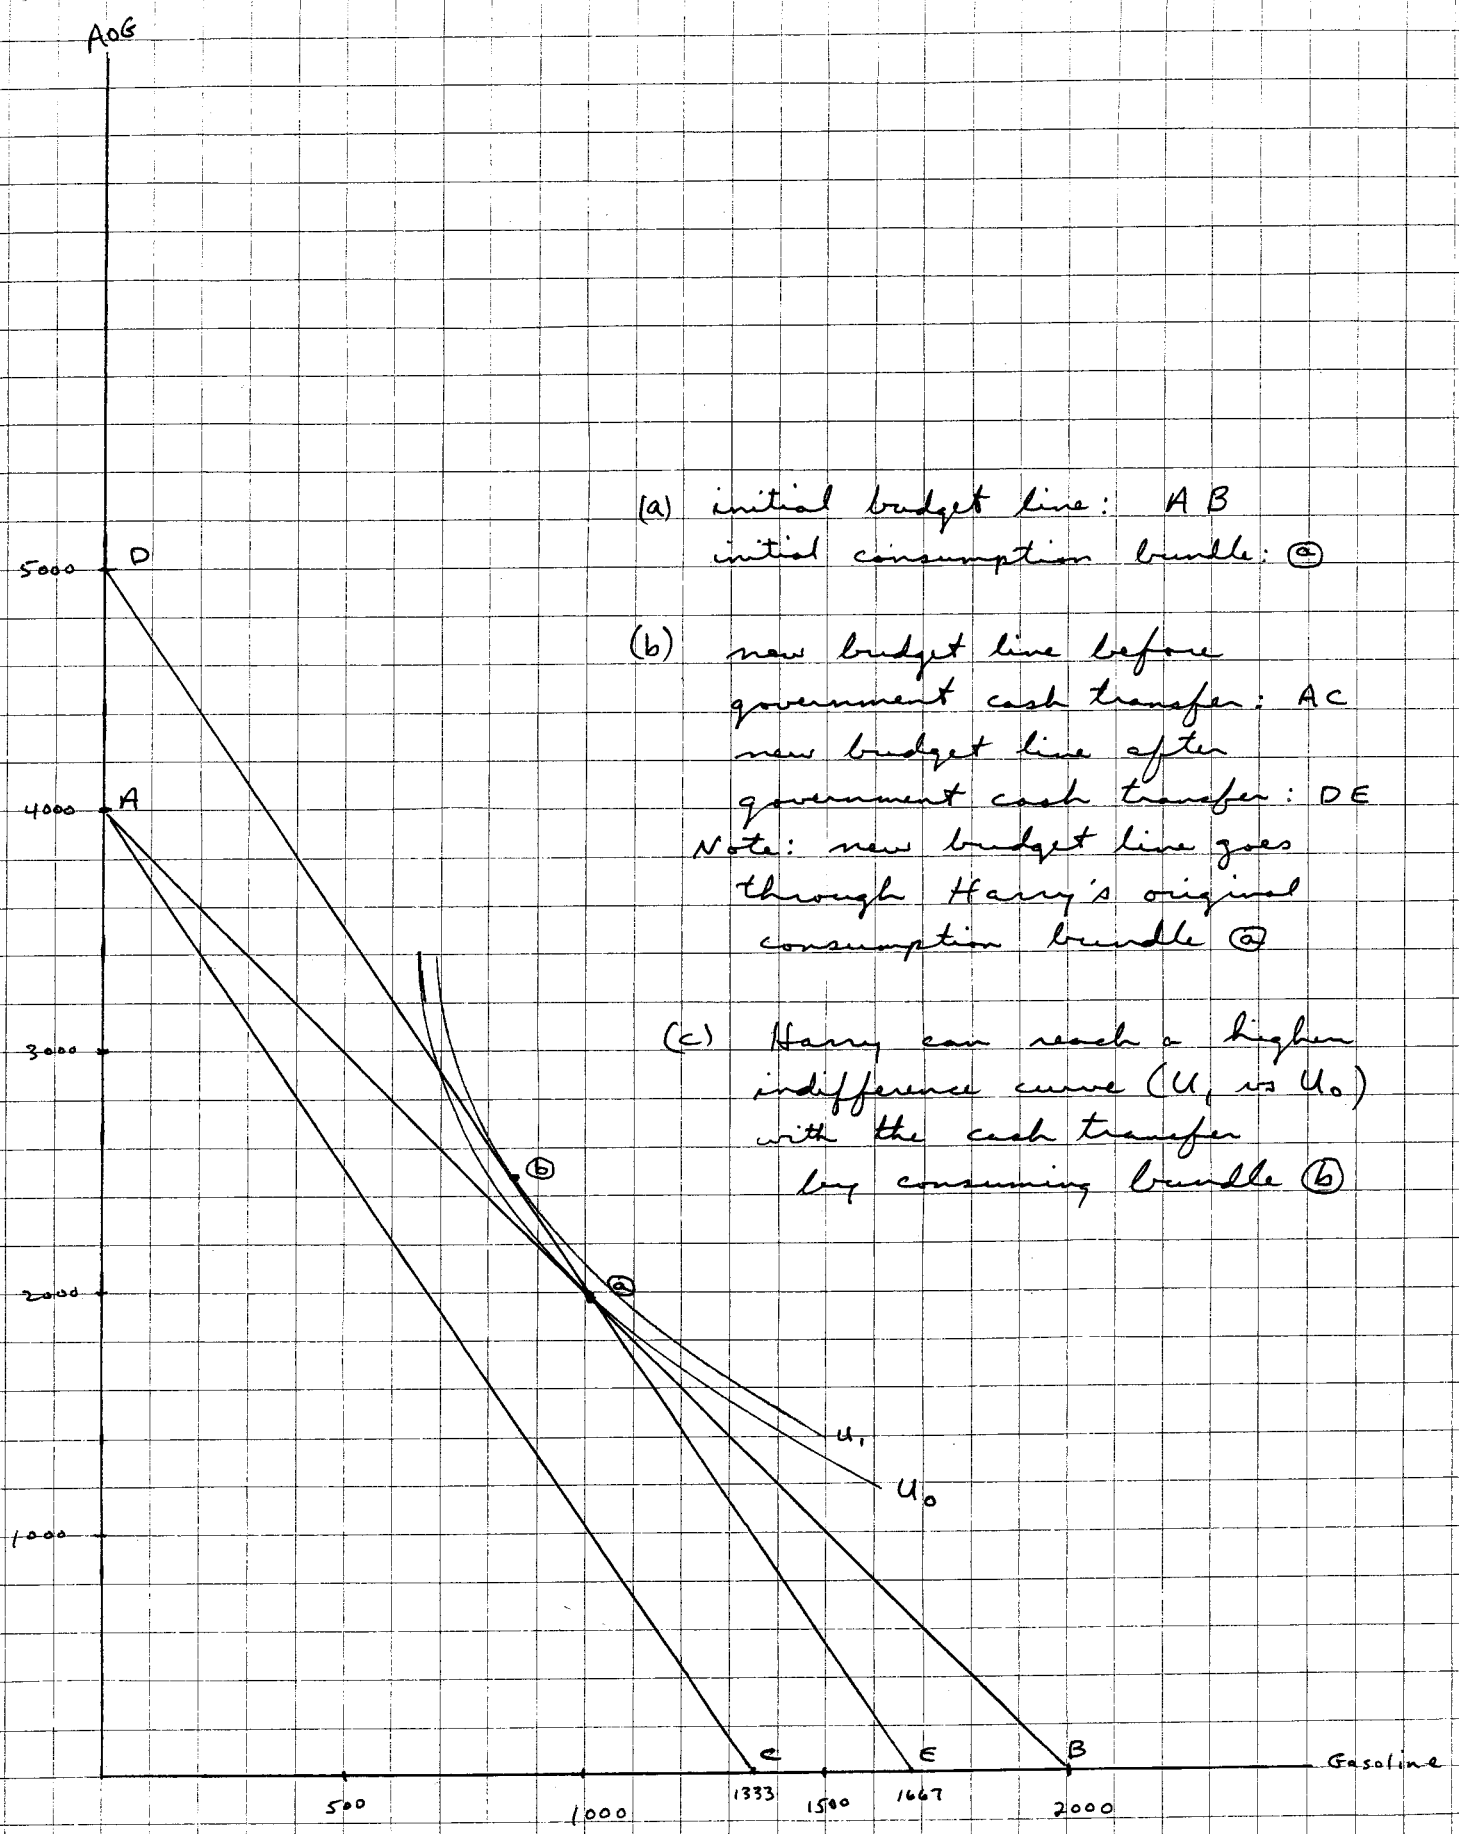 AOG
(a) initial budget line: A B
D
initial consumption bundle: ⓐ
5000
(b) new budget line before
government cash transfer: AC
new budget line after
A
4000
government cash transfer: DE
Note: new budget line goes
through Harry's original
consumption bundle ⓐ
(c) Harry can reach a higher
3000
indifference curve (U₁ vs U₀)
with the cash transfer
ⓑ
by consuming bundle ⓑ
ⓐ
2000
U₁
U₀
1000
C E B
Gasoline
500 1000 1333 1500 1667 2000